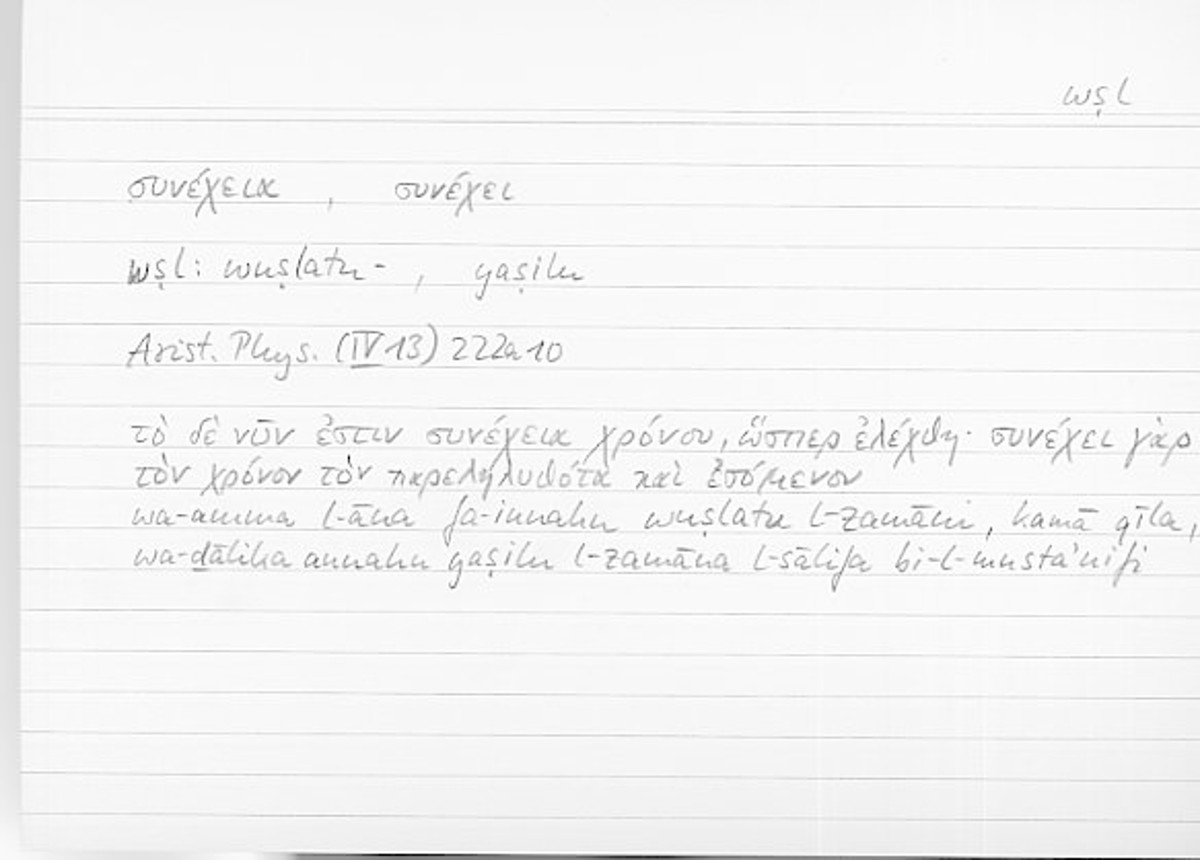 wṣl
συνέχεια , συνέχει
wṣl: wuṣlatu- , yaṣilu
Arist. Phys. (IV 13) 222a10
τὸ δὲ νῦν ἐστιν συνέχεια χρόνου, ὥσπερ ἐλέχθη· συνέχει γὰρ
τὸν χρόνον τὸν παρεληλυθότα καὶ ἐσόμενον
wa-amma l-āna fa-innahu wuṣlatu l-zamāni, kamā qīla,
wa-ḏālika annahu yaṣilu l-zamāna l-sālifa bi-l-musta'nifi